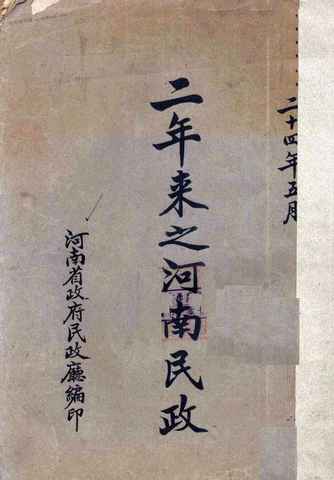 二十四年五月
二年来之河南民政
河南省政府民政廳編印